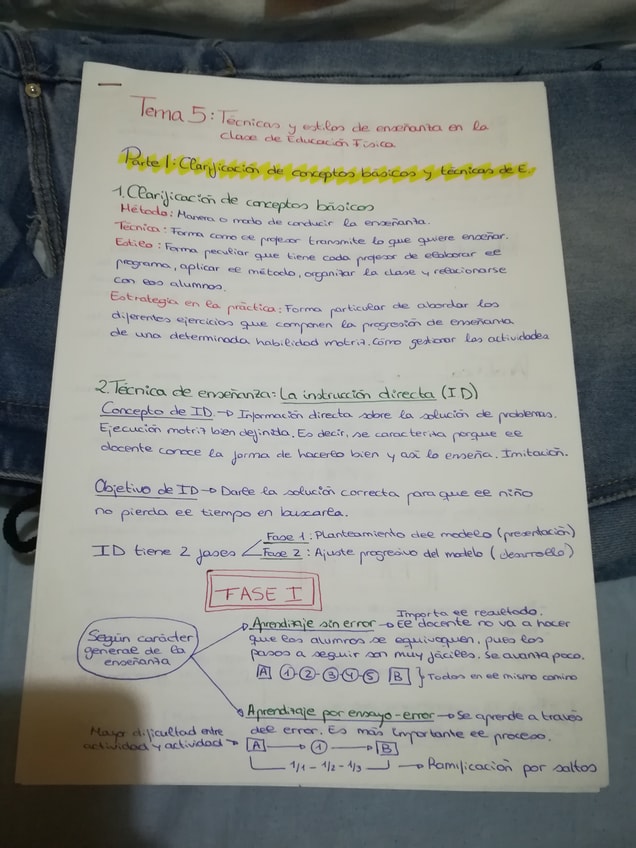 Tema 5: Técnicas y estilos de enseñanza en la
clase de Educación Física
Parte 1: Clarificación de conceptos básicos y técnicas de E.
1. Clarificación de conceptos básicos
Método: Manera o modo de conducir la enseñanza.
Técnica: Forma como el profesor transmite lo que quiere enseñar.
Estilo: Forma peculiar que tiene cada profesor de elaborar el
programa, aplicar el método, organizar la clase y relacionarse
con los alumnos.
Estrategia en la práctica: Forma particular de abordar los
diferentes ejercicios que componen la progresión de enseñanza
de una determinada habilidad motriz. Cómo gestionar las actividades
2. Técnica de enseñanza: La instrucción directa (ID)
Concepto de ID → Información directa sobre la solución de problemas.
Ejecución motriz bien definida. Es decir, se caracteriza porque el
docente conoce la forma de hacerlo bien y así lo enseña. Imitación.
Objetivo de ID → Darle la solución correcta para que el niño
no pierda el tiempo en buscarla.
ID tiene 2 fases
Fase 1: Planteamiento del modelo (presentación)
Fase 2: Ajuste progresivo del modelo (desarrollo)
FASE I
Según carácter
general de la
enseñanza
Importa el resultado.
Aprendizaje sin error → El docente no va a hacer
que los alumnos se equivoquen, pues los
pasos a seguir son muy fáciles. Se avanza poco.
A 1-2-3-4-5 B } Todos en el mismo camino
Aprendizaje por ensayo-error → Se aprende a través
del error. Es más importante el proceso.
Mayor dificultad entre
actividad y actividad → A → 1 → B
1/1 - 1/2 - 1/3 → Ramificación por saltos